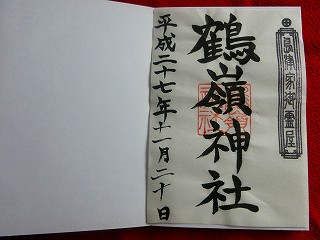 島津家御霊屋
鶴嶺神社
平成二十七年十一月二十日